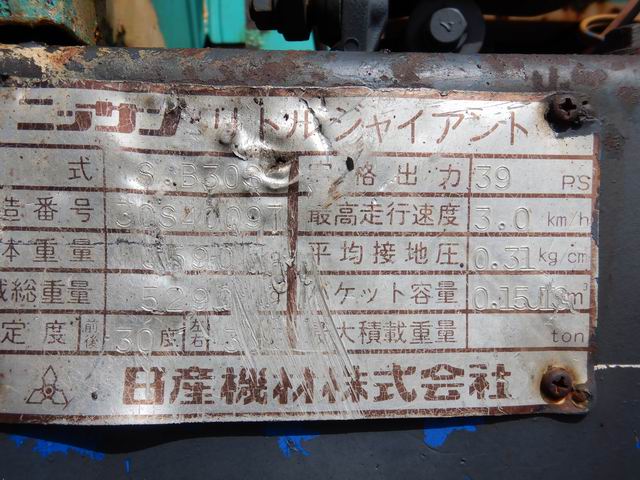 ニッサン・リトルジャイアント
式 S&B30S 定格出力 39 PS
造番号 最高走行速度 3.0 km/h
体重量 平均接地圧 0.31 kg/cm
械総重量 バケット容量 m³
定度 前後 30度 左右 最大積載重量 ton
日産機材株式会社